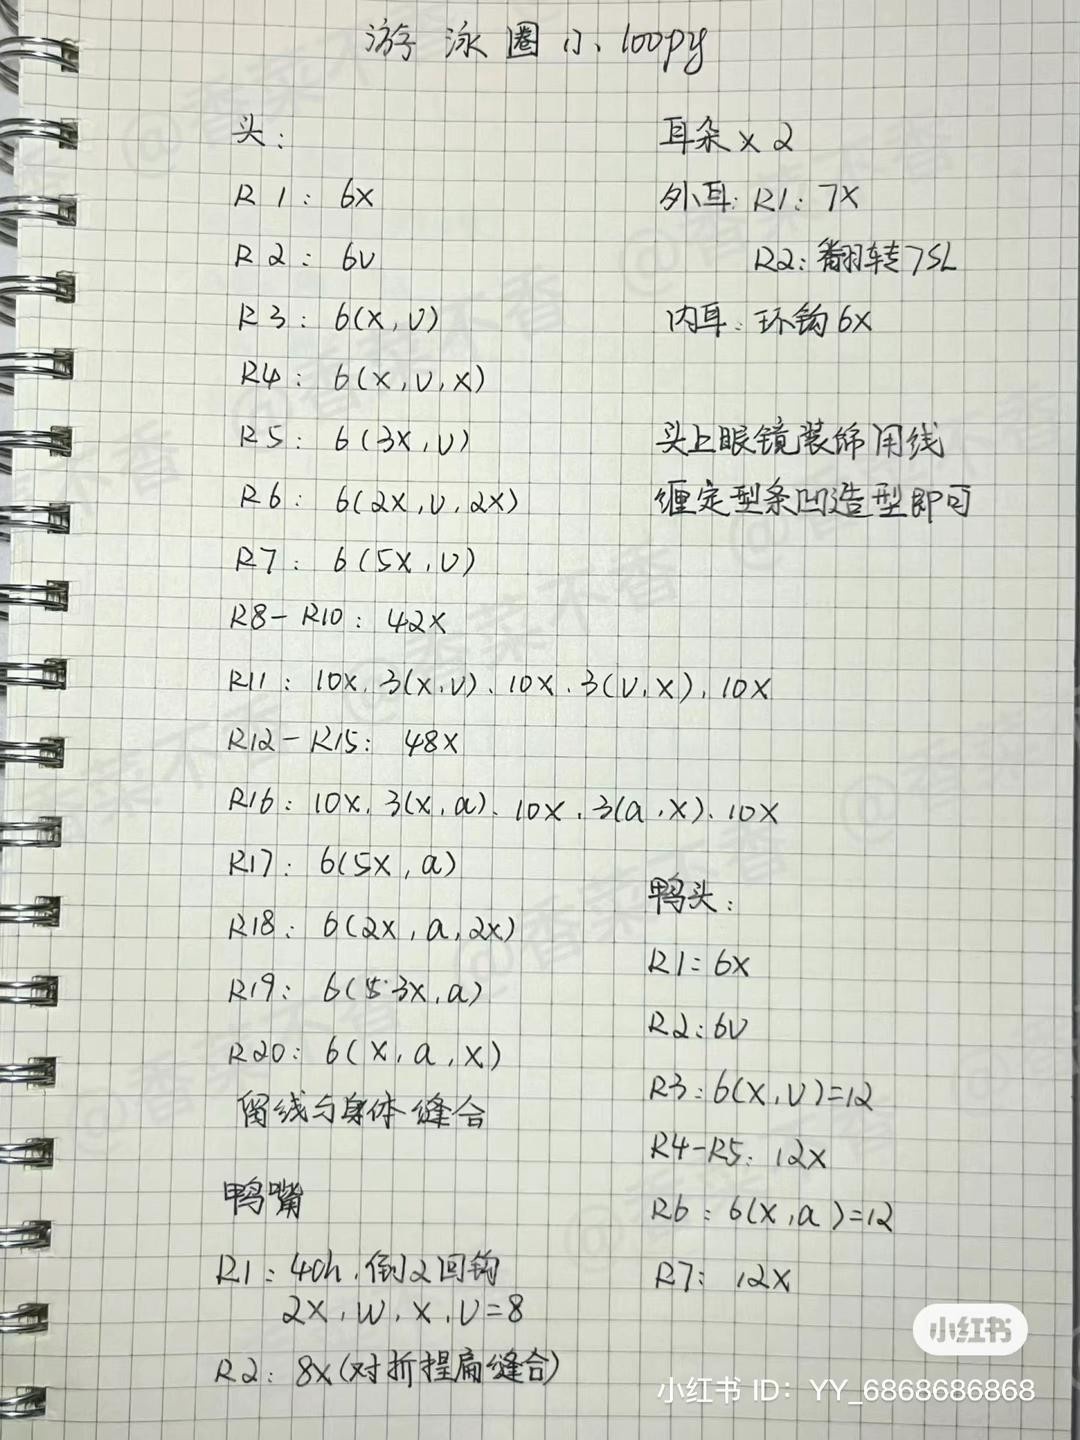 游泳圈小loopy
头：
R1：6X
R2：6V
R3：6(X,V)
R4：6(X,V,X)
R5：6(3X,V)
R6：6(2X,V,2X)
R7：6(5X,V)
R8-R10：42X
R11：10X、3(X,V)、10X、3(V,X)、10X
R12-R15：48X
R16：10X、3(X,a)、10X、3(a,X)、10X
R17：6(5X,a)
R18：6(2X,a,2X)
R19：6(3X,a)
R20：6(X,a,X)
留线与身体缝合
鸭嘴
R1：4Ch,倒2回钩
2X,W,X,V=8
R2：8X(对折捏扁缝合)
耳朵X2
外耳：R1：7X
R2：翻转7SL
内耳：环钩6X
头上眼镜装饰用线
缠定型条凹造型即可
鸭头：
R1：6X
R2：6V
R3：6(X,V)=12
R4-R5：12X
R6：6(X,a)=12
R7：12X
小红书
小红书 ID：YY_6868686868
@香菜不香